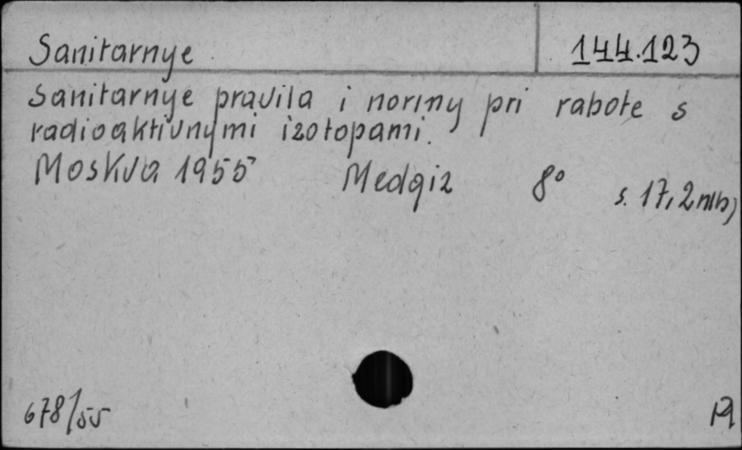 Sanitarnye 144.123
Sanitarnye pravila i normy pri rabote s
radioaktivnymi izotopami.
Moskva 1955 Medgiz 8° s. 17, 2 nlb)
678/55